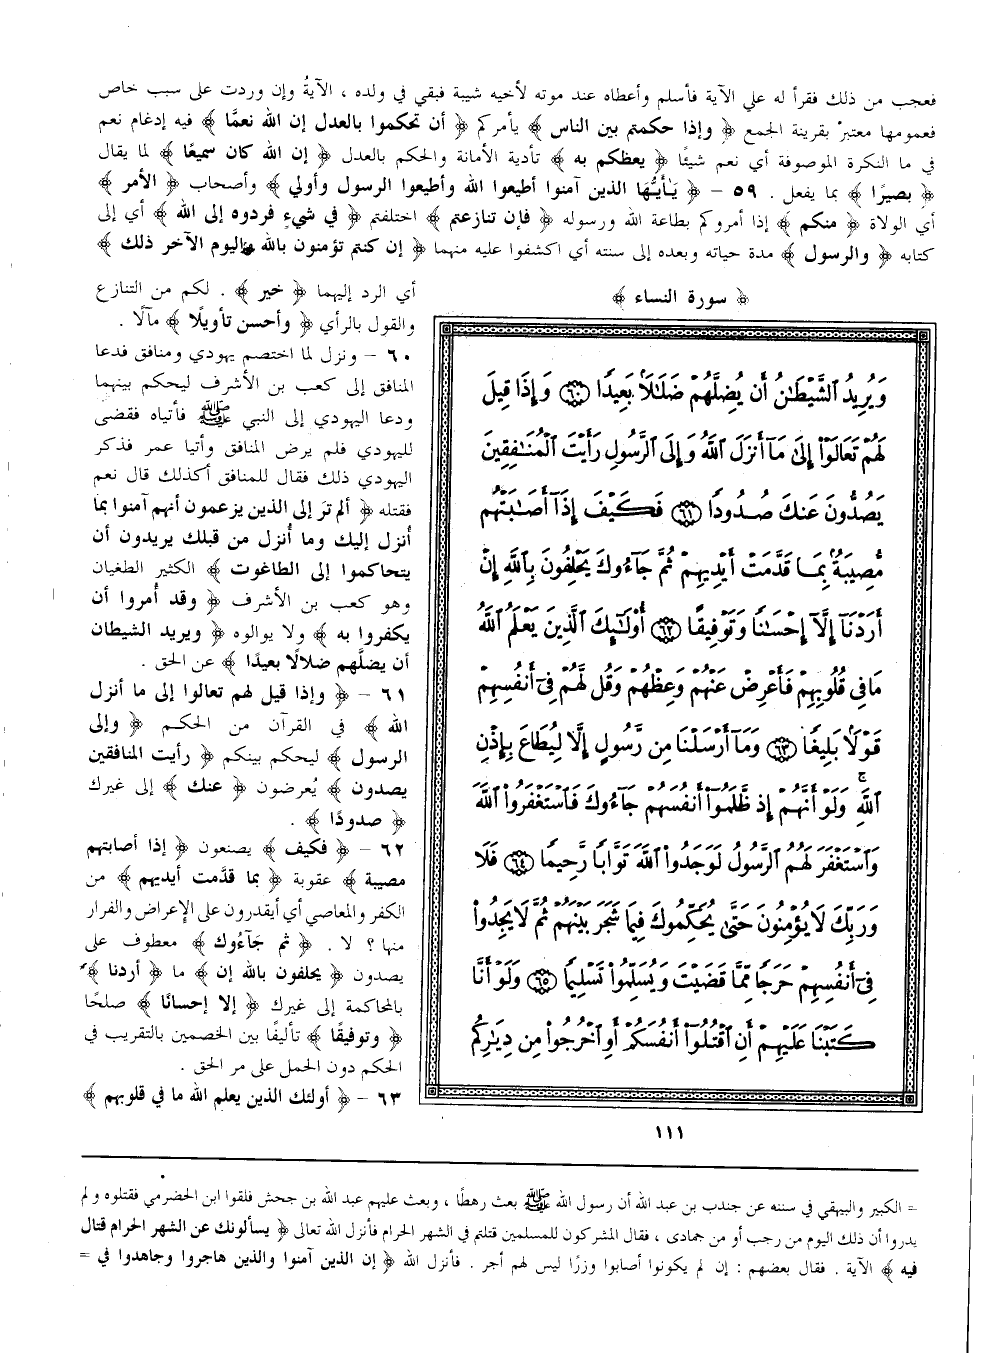 فعجب من ذلك فقرأ له علي الآية فأسلم وأعطاه عند موته لأخيه شيبة فبقي في ولده ، الآيةُ وإن وردت على سبب خاص
فعمومها معتبرٌ بقرينة الجمع ﴿ وإذا حكمتم بين الناس ﴾ يأمركم ﴿ أن تحكموا بالعدل إن الله نعمَّا ﴾ فيه إدغام نعم
في ما النكرة الموصوفة أي نعم شيئًا ﴿ يعظكم به ﴾ تأدية الأمانة والحكم بالعدل ﴿ إن الله كان سميعًا ﴾ لما يقال
﴿ بصيرًا ﴾ بما يفعل . ٥٩ – ﴿ يَـٰأيـُّهَا الذين آمنوا أطيعوا الله وأطيعوا الرسول وأولي ﴾ وأصحاب ﴿ الأمر ﴾
أي الولاة ﴿ منكم ﴾ إذا أمروكم بطاعة الله ورسوله ﴿ فإن تنازعتم ﴾ اختلفتم ﴿ في شيءٍ فردوه إلى الله ﴾ أي إلى
كتابه ﴿ والرسول ﴾ مدة حياته وبعده إلى سنته أي اكشفوا عليه منهما ﴿ إن كنتم تؤمنون بالله واليوم الآخر ذلك ﴾
﴿ سورة النساء ﴾
وَيُرِيدُ ٱلشَّيْطَـٰنُ أَن يُضِلَّهُمْ ضَلَـٰلَاۢ بَعِيدًا ﴿٦٠﴾ وَإِذَا قِيلَ
لَهُمْ تَعَالَوْا۟ إِلَىٰ مَآ أَنزَلَ ٱللَّهُ وَإِلَى ٱلرَّسُولِ رَأَيْتَ ٱلْمُنَـٰفِقِينَ
يَصُدُّونَ عَنكَ صُدُودًا ﴿٦١﴾ فَكَيْفَ إِذَآ أَصَـٰبَتْهُم
مُّصِيبَةٌۢ بِمَا قَدَّمَتْ أَيْدِيهِمْ ثُمَّ جَآءُوكَ يَحْلِفُونَ بِٱللَّهِ إِنْ
أَرَدْنَآ إِلَّآ إِحْسَـٰنًا وَتَوْفِيقًا ﴿٦٢﴾ أُو۟لَـٰٓئِكَ ٱلَّذِينَ يَعْلَمُ ٱللَّهُ
مَا فِى قُلُوبِهِمْ فَأَعْرِضْ عَنْهُمْ وَعِظْهُمْ وَقُل لَّهُمْ فِىٓ أَنفُسِهِمْ
قَوْلَاۢ بَلِيغًا ﴿٦٣﴾ وَمَآ أَرْسَلْنَا مِن رَّسُولٍ إِلَّا لِيُطَاعَ بِإِذْنِ
ٱللَّهِ ۚ وَلَوْ أَنَّهُمْ إِذ ظَّلَمُوٓا۟ أَنفُسَهُمْ جَآءُوكَ فَٱسْتَغْفَرُوا۟ ٱللَّهَ
وَٱسْتَغْفَرَ لَهُمُ ٱلرَّسُولُ لَوَجَدُوا۟ ٱللَّهَ تَوَّابًا رَّحِيمًا ﴿٦٤﴾ فَلَا
وَرَبِّكَ لَا يُؤْمِنُونَ حَتَّىٰ يُحَكِّمُوكَ فِيمَا شَجَرَ بَيْنَهُمْ ثُمَّ لَا يَجِدُوا۟
فِىٓ أَنفُسِهِمْ حَرَجًا مِّمَّا قَضَيْتَ وَيُسَلِّمُوا۟ تَسْلِيمًا ﴿٦٥﴾ وَلَوْ أَنَّا
كَتَبْنَا عَلَيْهِمْ أَنِ ٱقْتُلُوٓا۟ أَنفُسَكُمْ أَوِ ٱخْرُجُوا۟ مِن دِيَـٰرِكُم
أي الرد إليهما ﴿ خير ﴾ . لكم من التنازع
والقول بالرأي ﴿ وأحسن تأويلًا ﴾ مآلًا .
٦٠ – ونزل لما اختصم يهودي ومنافق فدعا
المنافق إلى كعب بن الأشرف ليحكم بينهما
ودعا اليهودي إلى النبي ﷺ فأتياه فقضى
لليهودي فلم يرض المنافق وأتيا عمر فذكر
اليهودي ذلك فقال للمنافق أكذلك قال نعم
فقتله ﴿ ألم تر إلى الذين يزعمون أنهم آمنوا بما
أُنزل إليك وما أُنزل من قبلك يريدون أن
يتحاكموا إلى الطاغوت ﴾ الكثير الطغيان
وهو كعب بن الأشرف ﴿ وقد أُمروا أن
يكفروا به ﴾ ولا يوالوه ﴿ ويريد الشيطان
أن يضلَّهم ضلالًا بعيدًا ﴾ عن الحق .
٦١ – ﴿ وإذا قيل لهم تعالوا إلى ما أنزل
الله ﴾ في القرآن من الحكم ﴿ وإلى
الرسول ﴾ ليحكم بينكم ﴿ رأيت المنافقين
يصدون ﴾ يُعرضون ﴿ عنك ﴾ إلى غيرك
﴿ صدودًا ﴾ .
٦٢ – ﴿ فكيف ﴾ يصنعون ﴿ إذا أصابتهم
مصيبة ﴾ عقوبة ﴿ بما قدَّمت أيديهم ﴾ من
الكفر والمعاصي أي أيقدرون على الإعراض والفرار
منها ؟ لا . ﴿ ثم جَآءُوك ﴾ معطوف على
يصدون ﴿ يحلفون بالله إن ﴾ ما ﴿ أردنا ﴾
بالمحاكمة إلى غيرك ﴿ إلا إحسانًا ﴾ صلحًا
﴿ وتوفيقًا ﴾ تأليفًا بين الخصمين بالتقريب في
الحكم دون الحمل على مر الحق .
٦٣ – ﴿ أولئك الذين يعلم الله ما في قلوبهم ﴾
١١١
= الكبير والبيهقي في سننه عن جندب بن عبد الله أن رسول الله ﷺ بعث رهطًا ، وبعث عليهم عبد الله بن جحش فلقوا ابن الحضرمي فقتلوه و لم
يدروا أن ذلك اليوم من رجب أو من جمادى ، فقال المشركون للمسلمين قتلتم في الشهر الحرام فأنزل الله تعالى ﴿ يسألونك عن الشهر الحرام قتال
فيه ﴾ الآية . فقال بعضهم : إن لم يكونوا أصابوا وزرًا ليس لهم أجر . فأنزل الله ﴿ إن الذين آمنوا والذين هاجروا وجاهدوا في =